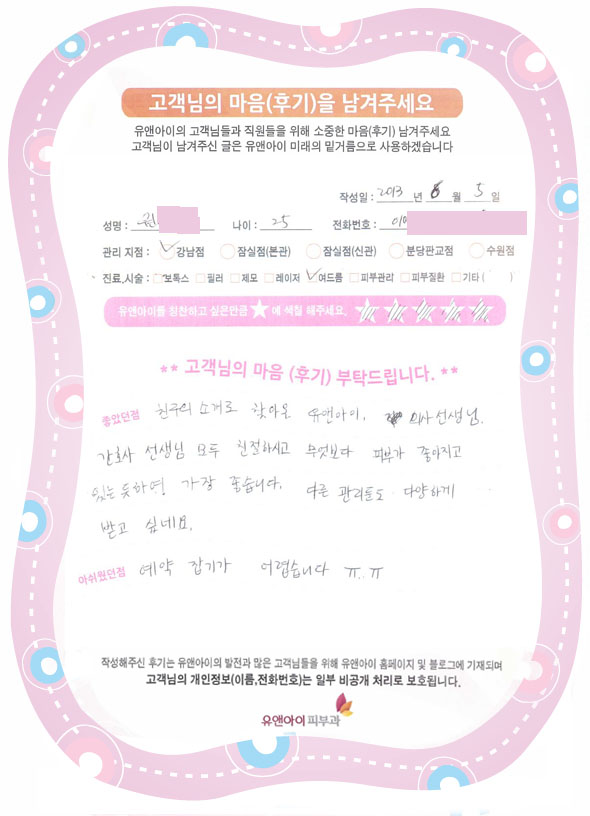 고객님의 마음(후기)을 남겨주세요
유앤아이의 고객님들과 직원들을 위해 소중한 마음(후기) 남겨주세요
고객님이 남겨주신 글은 유앤아이 미래의 밑거름으로 사용하겠습니다
작성일 : 2013 년 8 월 5 일
성명 : 나이 : 25 전화번호 : 010
관리 지점 : 강남점 잠실점(본관) 잠실점(신관) 분당판교점 수원점
진료,시술 : 보톡스 필러 제모 레이저 여드름 피부관리 피부질환 기타 ( )
유앤아이를 칭찬하고 싶은만큼 ★ 에 색칠 해주세요. ★★★★★
** 고객님의 마음 (후기) 부탁드립니다. **
좋았던점 친구의 소개로 찾아온 유앤아이, 의사선생님.
간호사 선생님 모두 친절하시고 무엇보다 피부가 좋아지고
있는 듯하여 가장 좋습니다. 다른 관리들도 다양하게
받고 싶네요.
아쉬웠던점 예약 잡기가 어렵습니다 ㅠ.ㅠ
작성해주신 후기는 유앤아이의 발전과 많은 고객님들을 위해 유앤아이 홈페이지 및 블로그에 기재되며
고객님의 개인정보(이름,전화번호)는 일부 비공개 처리로 보호됩니다.
유앤아이피부과